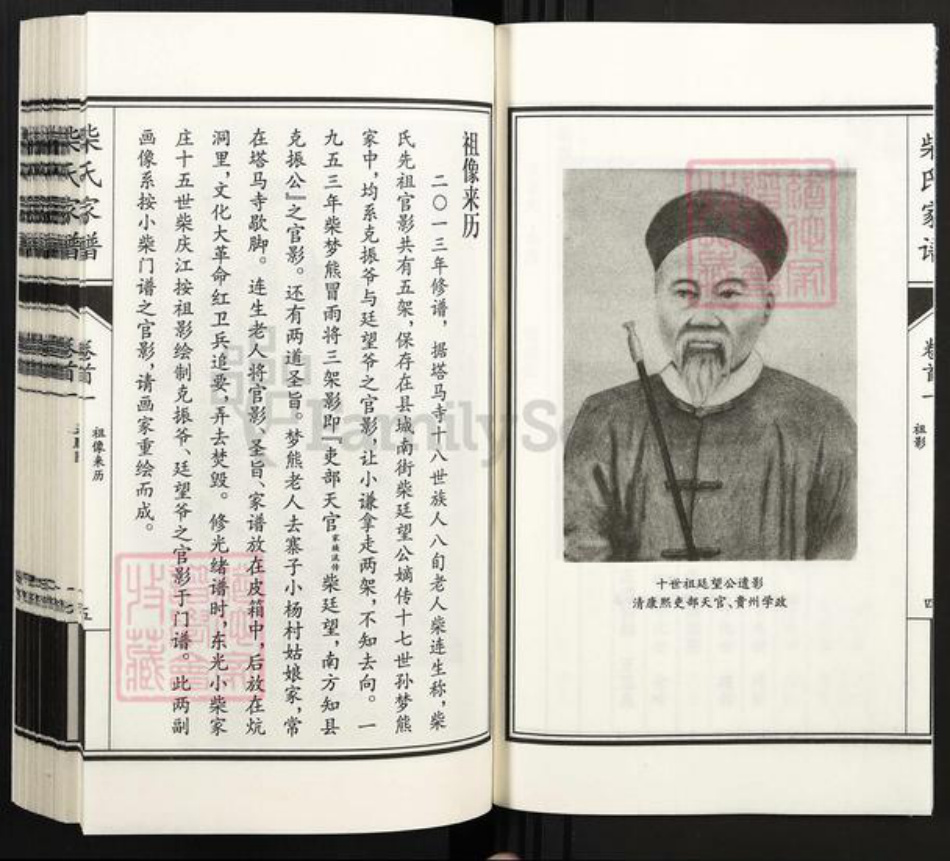 柴氏家谱
卷首一
祖影
四
十世祖廷望公遗影
清康熙吏部天官、贵州学政
祖像来历
二〇一三年修谱，据塔马寺十八世族人八旬老人柴连生称，柴
氏先祖官影共有五架，保存在县城南街柴廷望公嫡传十七世孙梦熊
家中，均系克振爷与廷望爷之官影，让小谦拿走两架，不知去向。一
九五三年柴梦熊冒雨将三架影即『吏部天官家族流传柴廷望，南方知县
克振公』之官影。还有两道圣旨。梦熊老人去寨子小杨村姑娘家，常
在塔马寺歇脚。连生老人将官影、圣旨、家谱放在皮箱中，后放在炕
洞里，文化大革命红卫兵追要，弄去焚毁。修光绪谱时，东光小柴家
庄十五世柴庆江按祖影绘制克振爷、廷望爷之官影于门谱。此两副
画像系按小柴门谱之官影，请画家重绘而成。
柴氏家谱
卷首一
祖像来历
五
FamilyS